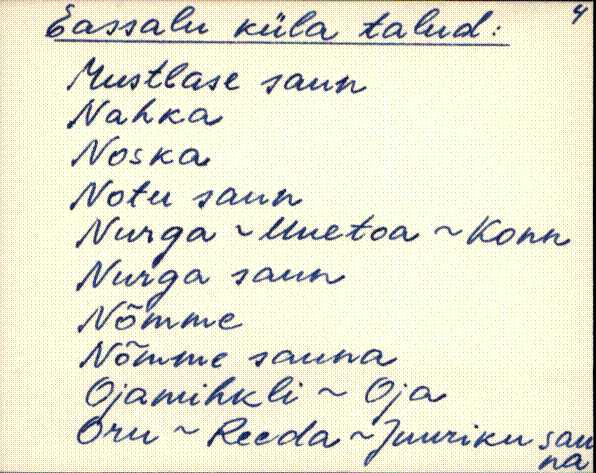 4
Eassalu küla talud:
Mustlase saun
Nahka
Noska
Notu saun
Nurga ~ Uuetoa ~ Konn
Nurga saun
Nõmme
Nõmme sauna
Ojamihkli ~ Oja
Oru ~ Reeda ~ Juuriku sau
na